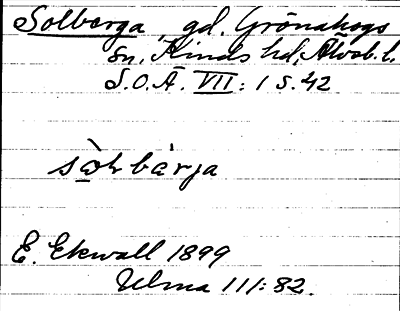 Solberga gd. Grönahogs
sn, Kinds hd, Älvsb. l.
S.O.Ä. VII: 1 s. 42
E. Ekwall 1899
Ulma 111: 82.